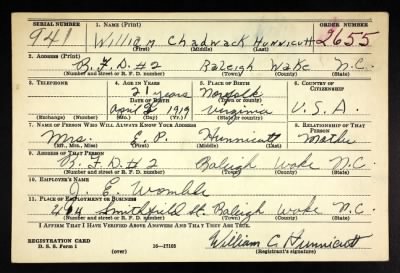 SERIAL NUMBER 1. NAME (Print) ORDER NUMBER
941 William Chadwack Hunnicutt 2655
(First) (Middle) (Last)
2. ADDRESS (Print)
R. F. D. #2 Raleigh Wake N.C.
(Number and street or R. F. D. number) (Town) (County) (State)
3. TELEPHONE 4. AGE IN YEARS 5. PLACE OF BIRTH 6. COUNTRY OF CITIZENSHIP
21 years Norfolk
DATE OF BIRTH (Town or county)
April 1919 Virginia U.S.A.
(Exchange) (Number) (Mo.) (Day) (Yr.) (State or country)
7. NAME OF PERSON WHO WILL ALWAYS KNOW YOUR ADDRESS 8. RELATIONSHIP OF THAT PERSON
Mrs. E. P. Hunnicutt Mother
(Mr., Mrs., Miss) (First) (Middle) (Last)
9. ADDRESS OF THAT PERSON
R. F. D. #2 Raleigh Wake N.C.
(Number and street or R. F. D. number) (Town) (County) (State)
10. EMPLOYER'S NAME
J. E. Womble
11. PLACE OF EMPLOYMENT OR BUSINESS
Smithfield St. Raleigh Wake N.C.
(Number and street or R. F. D. number) (Town) (County) (State)
I AFFIRM THAT I HAVE VERIFIED ABOVE ANSWERS AND THAT THEY ARE TRUE.
REGISTRATION CARD
D. S. S. Form 1 16—17105 William C. Hunnicutt
(over) (Registrant's signature)